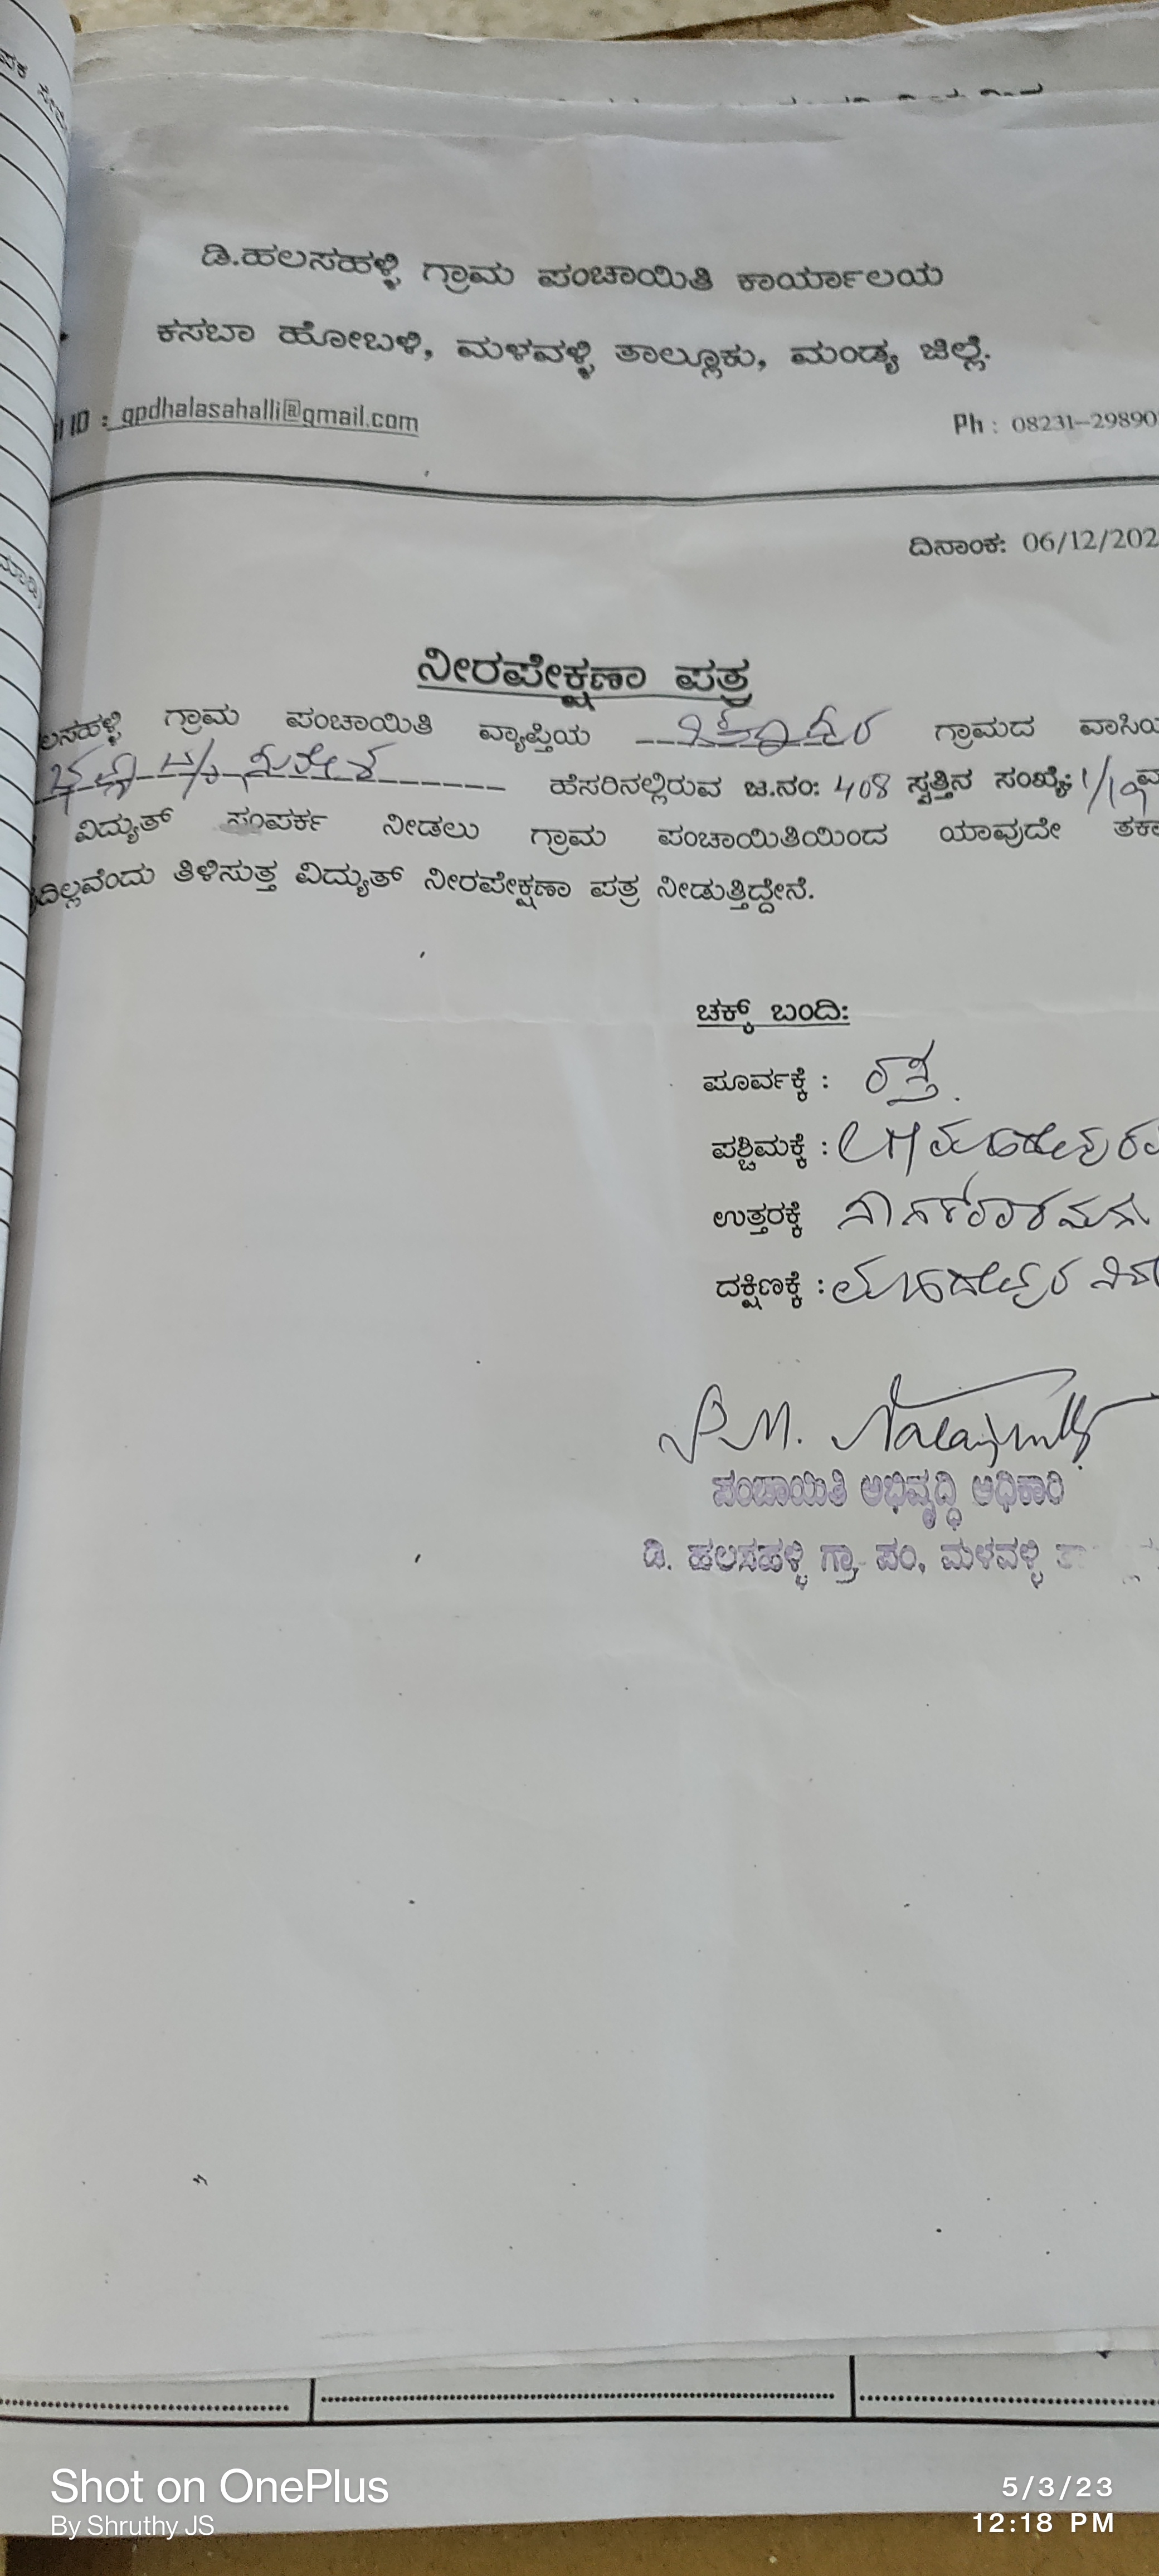 ಡಿ.ಹಲಸಹಳ್ಳಿ ಗ್ರಾಮ ಪಂಚಾಯಿತಿ ಕಾರ್ಯಾಲಯ
ಕಸಬಾ ಹೋಬಳಿ, ಮಳವಳ್ಳಿ ತಾಲ್ಲೂಕು, ಮಂಡ್ಯ ಜಿಲ್ಲೆ.
ID : gpdhalasahalli@gmail.com Ph : 08231-29890
ದಿನಾಂಕ: 06/12/202
ನೀರಪೇಕ್ಷಣಾ ಪತ್ರ
ಲಸಹಳ್ಳಿ ಗ್ರಾಮ ಪಂಚಾಯಿತಿ ವ್ಯಾಪ್ತಿಯ ಗ್ರಾಮದ ವಾಸಿಯ
ಹೆಸರಿನಲ್ಲಿರುವ ಜ.ನಂ: 408 ಸ್ವತ್ತಿನ ಸಂಖ್ಯೆ:
ವಿದ್ಯುತ್ ಸಂಪರ್ಕ ನೀಡಲು ಗ್ರಾಮ ಪಂಚಾಯಿತಿಯಿಂದ ಯಾವುದೇ ತಕರ
ದಿಲ್ಲವೆಂದು ತಿಳಿಸುತ್ತ ವಿದ್ಯುತ್ ನೀರಪೇಕ್ಷಣಾ ಪತ್ರ ನೀಡುತ್ತಿದ್ದೇನೆ.
ಚಕ್ಕ್ ಬಂದಿ:
ಪೂರ್ವಕ್ಕೆ : ರಸ್ತೆ.
ಪಶ್ಚಿಮಕ್ಕೆ :
ಉತ್ತರಕ್ಕೆ
ದಕ್ಷಿಣಕ್ಕೆ :
ಪಂಚಾಯಿತಿ ಅಭಿವೃದ್ಧಿ ಅಧಿಕಾರಿ
ಡಿ. ಹಲಸಹಳ್ಳಿ ಗ್ರಾ. ಪಂ, ಮಳವಳ್ಳಿ
Shot on OnePlus 5/3/23
By Shruthy JS 12:18 PM